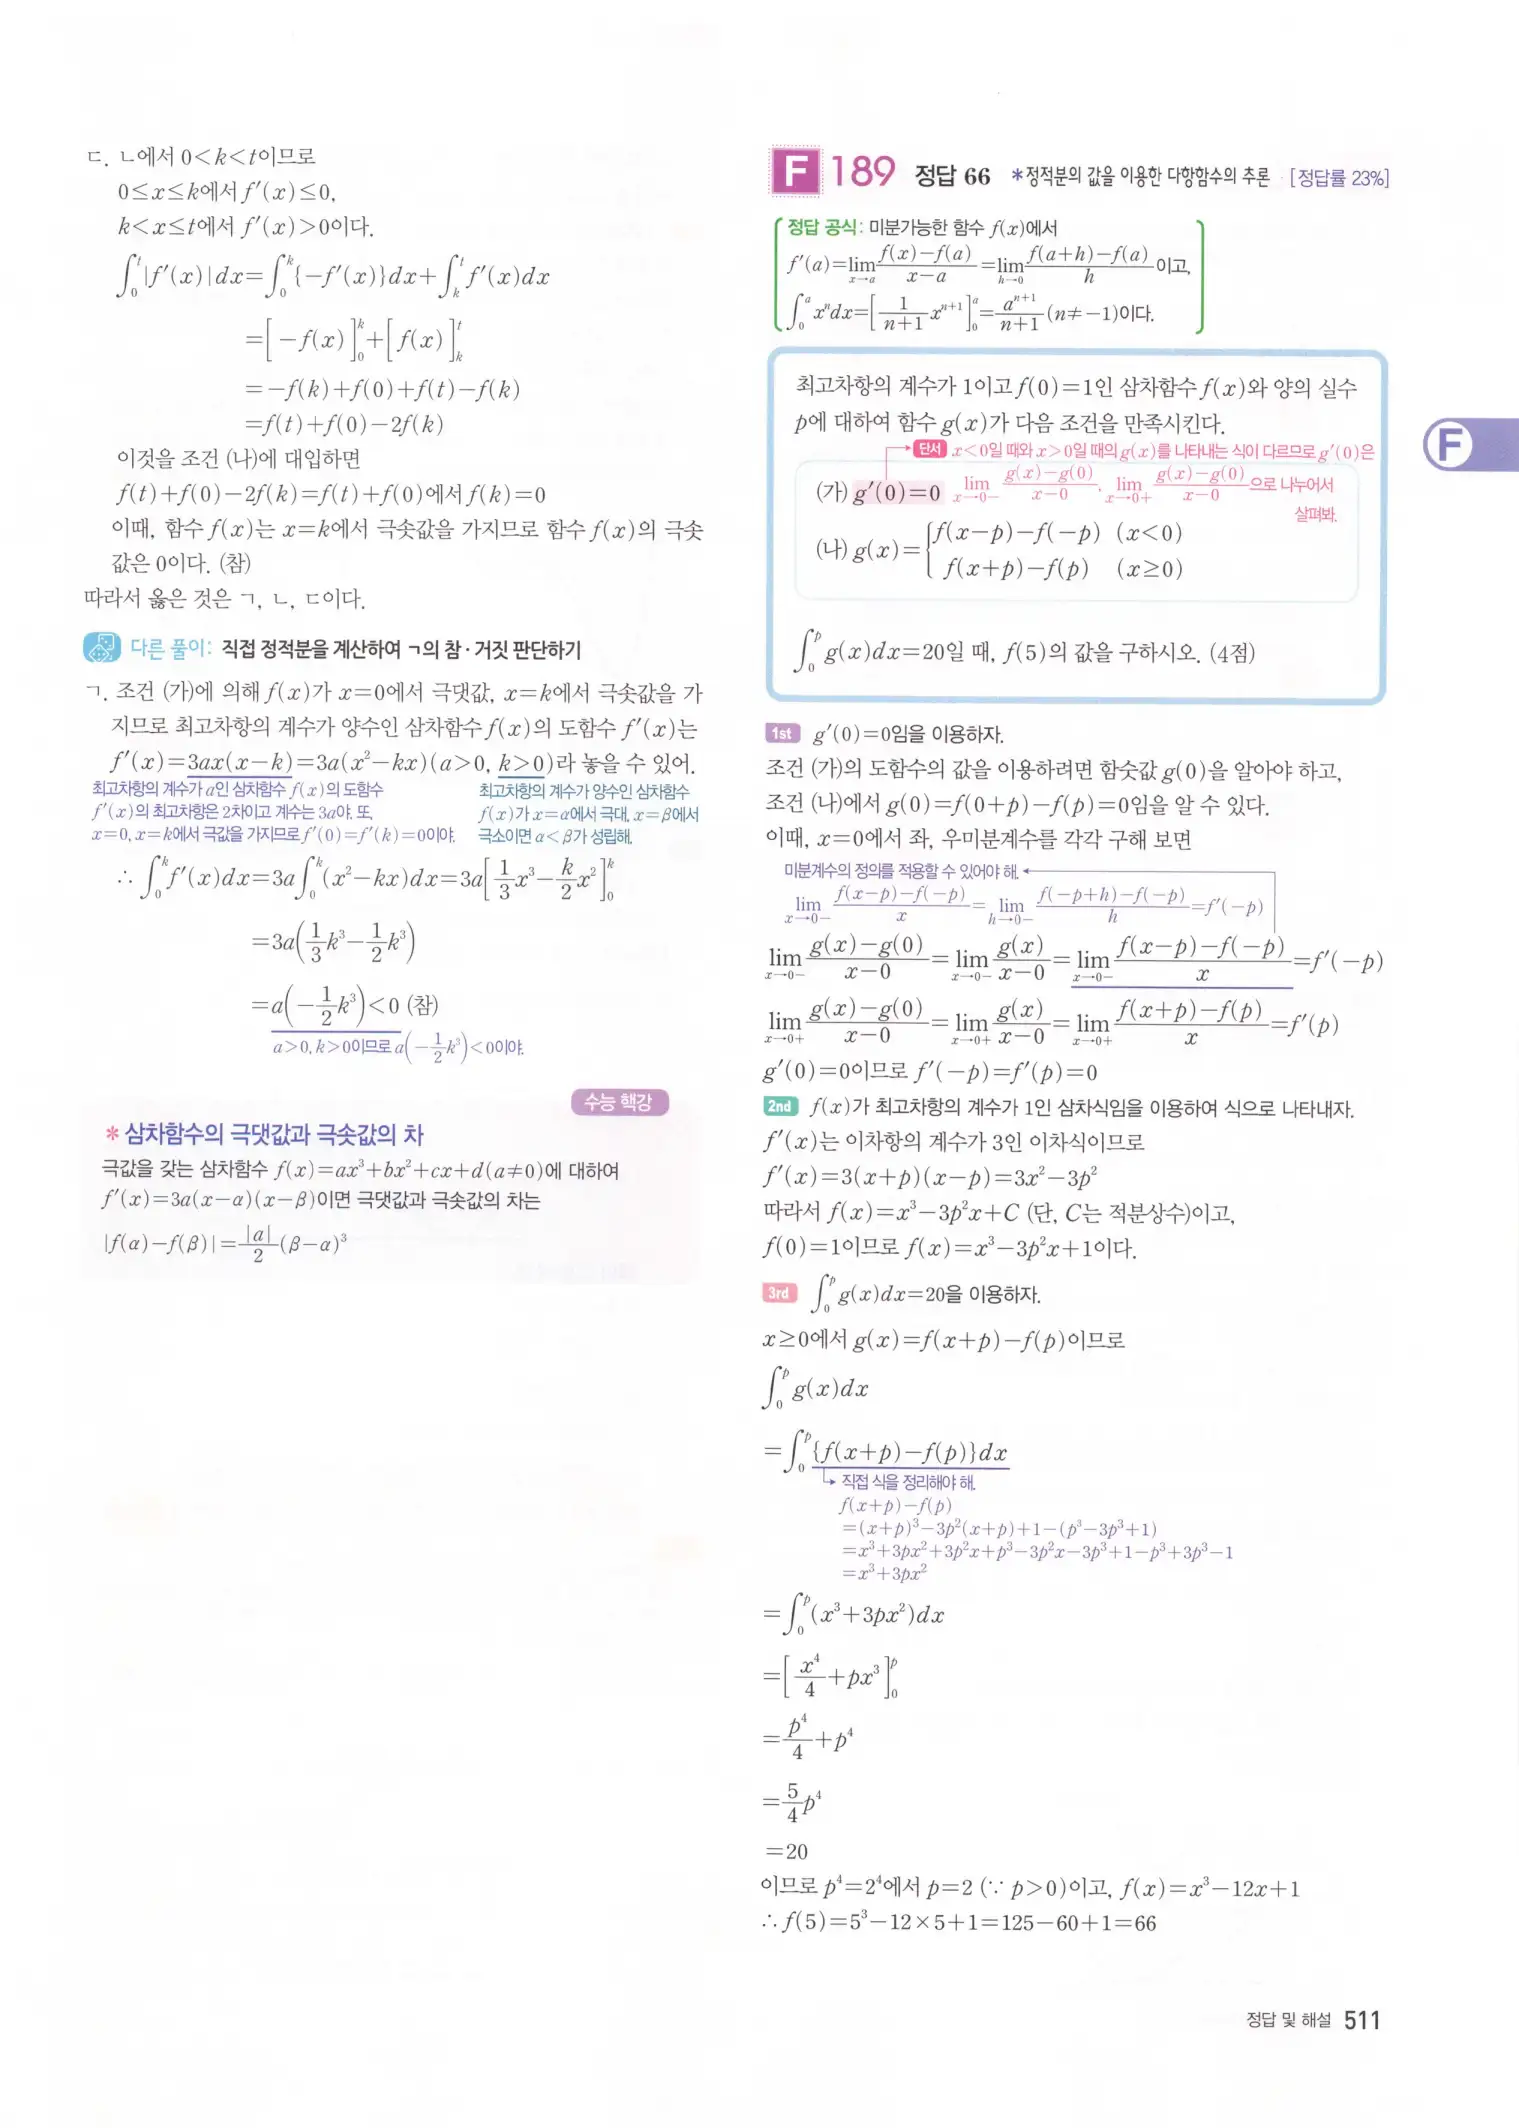 ㄷ. ㄴ에서 0<k<t이므로
0≤x≤k에서 f′(x)≤0,
k<x≤t에서 f′(x)>0이다.
∫₀ᵗ|f′(x)|dx=∫₀ᵏ{-f′(x)}dx+∫ₖᵗf′(x)dx
=[-f(x)]₀ᵏ+[f(x)]ₖᵗ
=-f(k)+f(0)+f(t)-f(k)
=f(t)+f(0)-2f(k)
이것을 조건 (나)에 대입하면
f(t)+f(0)-2f(k)=f(t)+f(0)에서 f(k)=0
이때, 함수 f(x)는 x=k에서 극솟값을 가지므로 함수 f(x)의 극솟
값은 0이다. (참)
따라서 옳은 것은 ㄱ, ㄴ, ㄷ이다.
다른 풀이: 직접 정적분을 계산하여 ㄱ의 참·거짓 판단하기
ㄱ. 조건 (가)에 의해 f(x)가 x=0에서 극댓값, x=k에서 극솟값을 가
지므로 최고차항의 계수가 양수인 삼차함수 f(x)의 도함수 f′(x)는
f′(x)=3ax(x-k)=3a(x²-kx)(a>0, k>0)라 놓을 수 있어.
최고차항의 계수가 a인 삼차함수 f(x)의 도함수
f′(x)의 최고차항은 2차이고 계수는 3a야. 또,
x=0, x=k에서 극값을 가지므로 f′(0)=f′(k)=0이야.
최고차항의 계수가 양수인 삼차함수
f(x)가 x=α에서 극대, x=β에서
극소이면 α<β가 성립해.
∴ ∫₀ᵏf′(x)dx=3a∫₀ᵏ(x²-kx)dx=3a[1/3x³-k/2x²]₀ᵏ
=3a(1/3k³-1/2k³)
=a(-1/2k³)<0 (참)
a>0, k>0이므로 a(-1/2k³)<0이야.
수능 핵강
*삼차함수의 극댓값과 극솟값의 차
극값을 갖는 삼차함수 f(x)=ax³+bx²+cx+d(a≠0)에 대하여
f′(x)=3a(x-α)(x-β)이면 극댓값과 극솟값의 차는
|f(α)-f(β)|=|a|/2(β-α)³
F 189 정답 66 *정적분의 값을 이용한 다항함수의 추론 [정답률 23%]
정답 공식: 미분가능한 함수 f(x)에서
f′(a)=lim x→a (f(x)-f(a))/(x-a)=lim h→0 (f(a+h)-f(a))/h이고,
∫₀ᵃxⁿdx=[1/(n+1)xⁿ⁺¹]₀ᵃ=aⁿ⁺¹/(n+1)(n≠-1)이다.
최고차항의 계수가 1이고 f(0)=1인 삼차함수 f(x)와 양의 실수
p에 대하여 함수 g(x)가 다음 조건을 만족시킨다.
단서 x<0일 때와 x>0일 때의 g(x)를 나타내는 식이 다르므로 g′(0)은
(가) g′(0)=0 lim x→0- (g(x)-g(0))/(x-0), lim x→0+ (g(x)-g(0))/(x-0)으로 나누어서
살펴봐.
(나) g(x)={f(x-p)-f(-p) (x<0)
f(x+p)-f(p) (x≥0)
∫₀ᵖg(x)dx=20일 때, f(5)의 값을 구하시오. (4점)
1st g′(0)=0임을 이용하자.
조건 (가)의 도함수의 값을 이용하려면 함숫값 g(0)을 알아야 하고,
조건 (나)에서 g(0)=f(0+p)-f(p)=0임을 알 수 있다.
이때, x=0에서 좌, 우미분계수를 각각 구해 보면
미분계수의 정의를 적용할 수 있어야 해.
lim x→0- (f(x-p)-f(-p))/x=lim h→0- (f(-p+h)-f(-p))/h=f′(-p)
lim x→0- (g(x)-g(0))/(x-0)=lim x→0- g(x)/(x-0)=lim x→0- (f(x-p)-f(-p))/x=f′(-p)
lim x→0+ (g(x)-g(0))/(x-0)=lim x→0+ g(x)/(x-0)=lim x→0+ (f(x+p)-f(p))/x=f′(p)
g′(0)=0이므로 f′(-p)=f′(p)=0
2nd f(x)가 최고차항의 계수가 1인 삼차식임을 이용하여 식으로 나타내자.
f′(x)는 이차항의 계수가 3인 이차식이므로
f′(x)=3(x+p)(x-p)=3x²-3p²
따라서 f(x)=x³-3p²x+C (단, C는 적분상수)이고,
f(0)=1이므로 f(x)=x³-3p²x+1이다.
3rd ∫₀ᵖg(x)dx=20을 이용하자.
x≥0에서 g(x)=f(x+p)-f(p)이므로
∫₀ᵖg(x)dx
=∫₀ᵖ{f(x+p)-f(p)}dx
직접 식을 정리해야 해.
f(x+p)-f(p)
=(x+p)³-3p²(x+p)+1-(p³-3p³+1)
=x³+3px²+3p²x+p³-3p²x-3p³+1-p³+3p³-1
=x³+3px²
=∫₀ᵖ(x³+3px²)dx
=[x⁴/4+px³]₀ᵖ
=p⁴/4+p⁴
=5/4p⁴
=20
이므로 p⁴=2⁴에서 p=2 (∵ p>0)이고, f(x)=x³-12x+1
∴ f(5)=5³-12×5+1=125-60+1=66
F
정답 및 해설 511